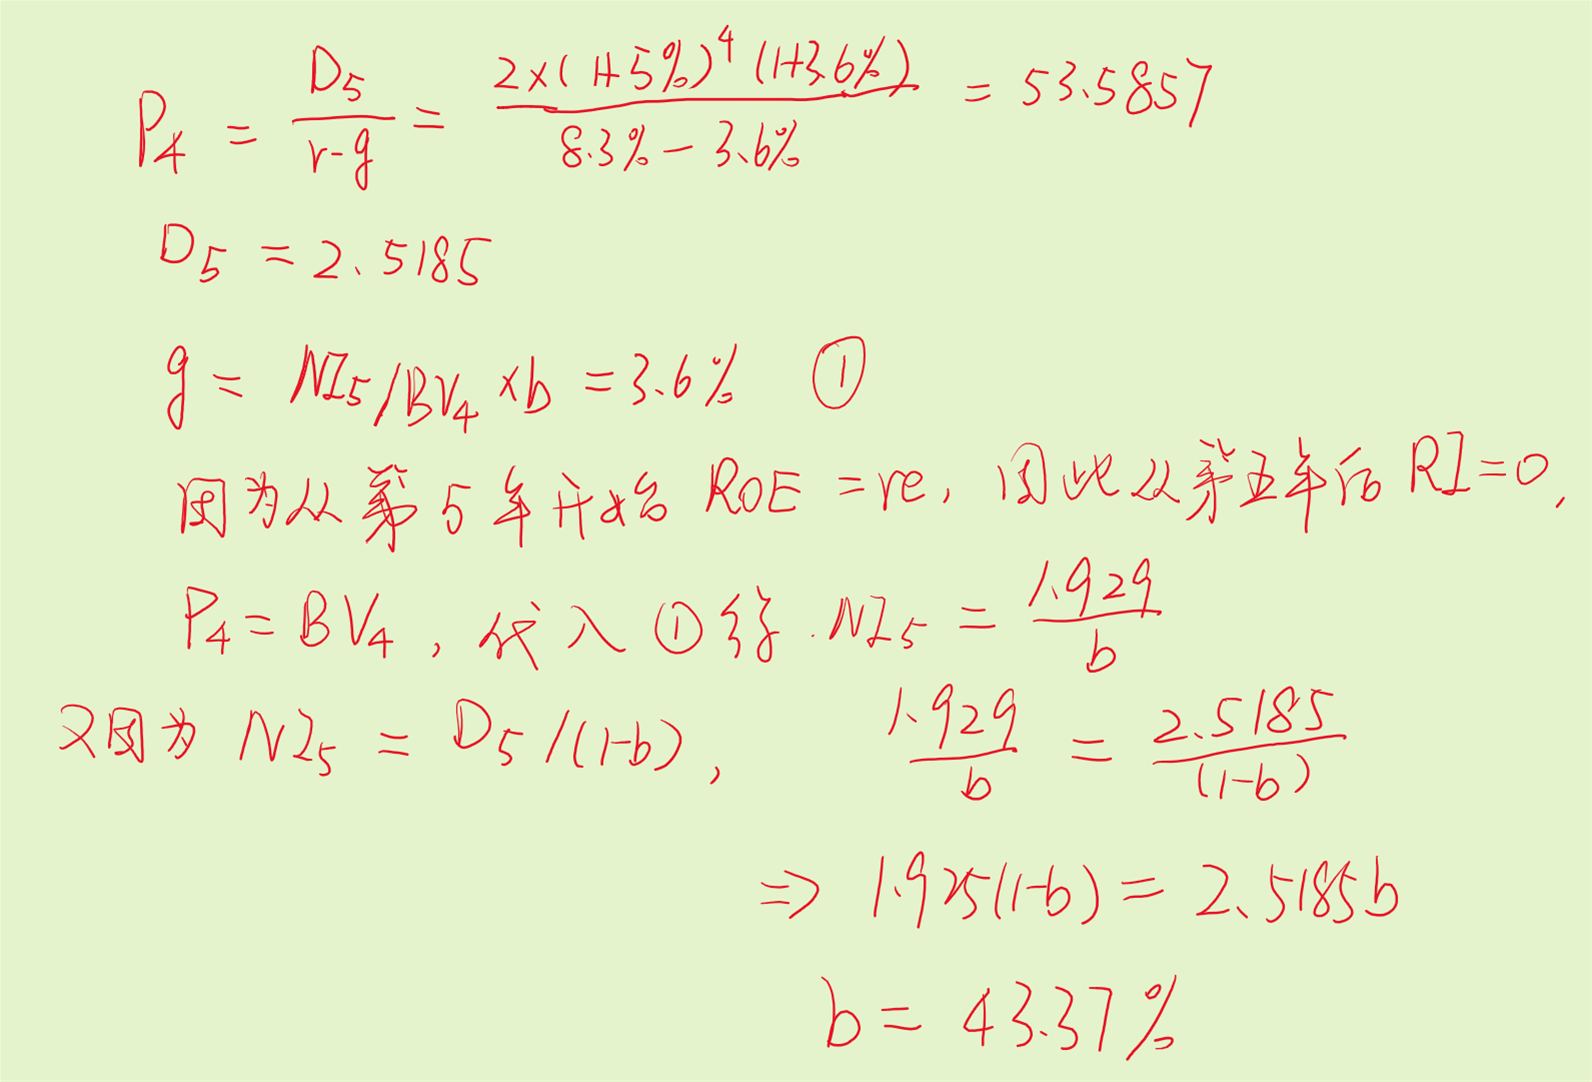 P₄ = D₅/(r-g) = 2×(1+5%)⁴(1+3.6%)/(8.3%-3.6%) = 53.5857
D₅ = 2.5185
g = NI₅/BV₄ ×b = 3.6% ①
因为从第5年开始 ROE = re, 因此从第五年后 RI=0,
P₄ = BV₄, 代入①得. NI₅ = 1.929/b
又因为 NI₅ = D₅/(1-b), 1.929/b = 2.5185/(1-b)
⇒ 1.925(1-b) = 2.5185b
b = 43.37%